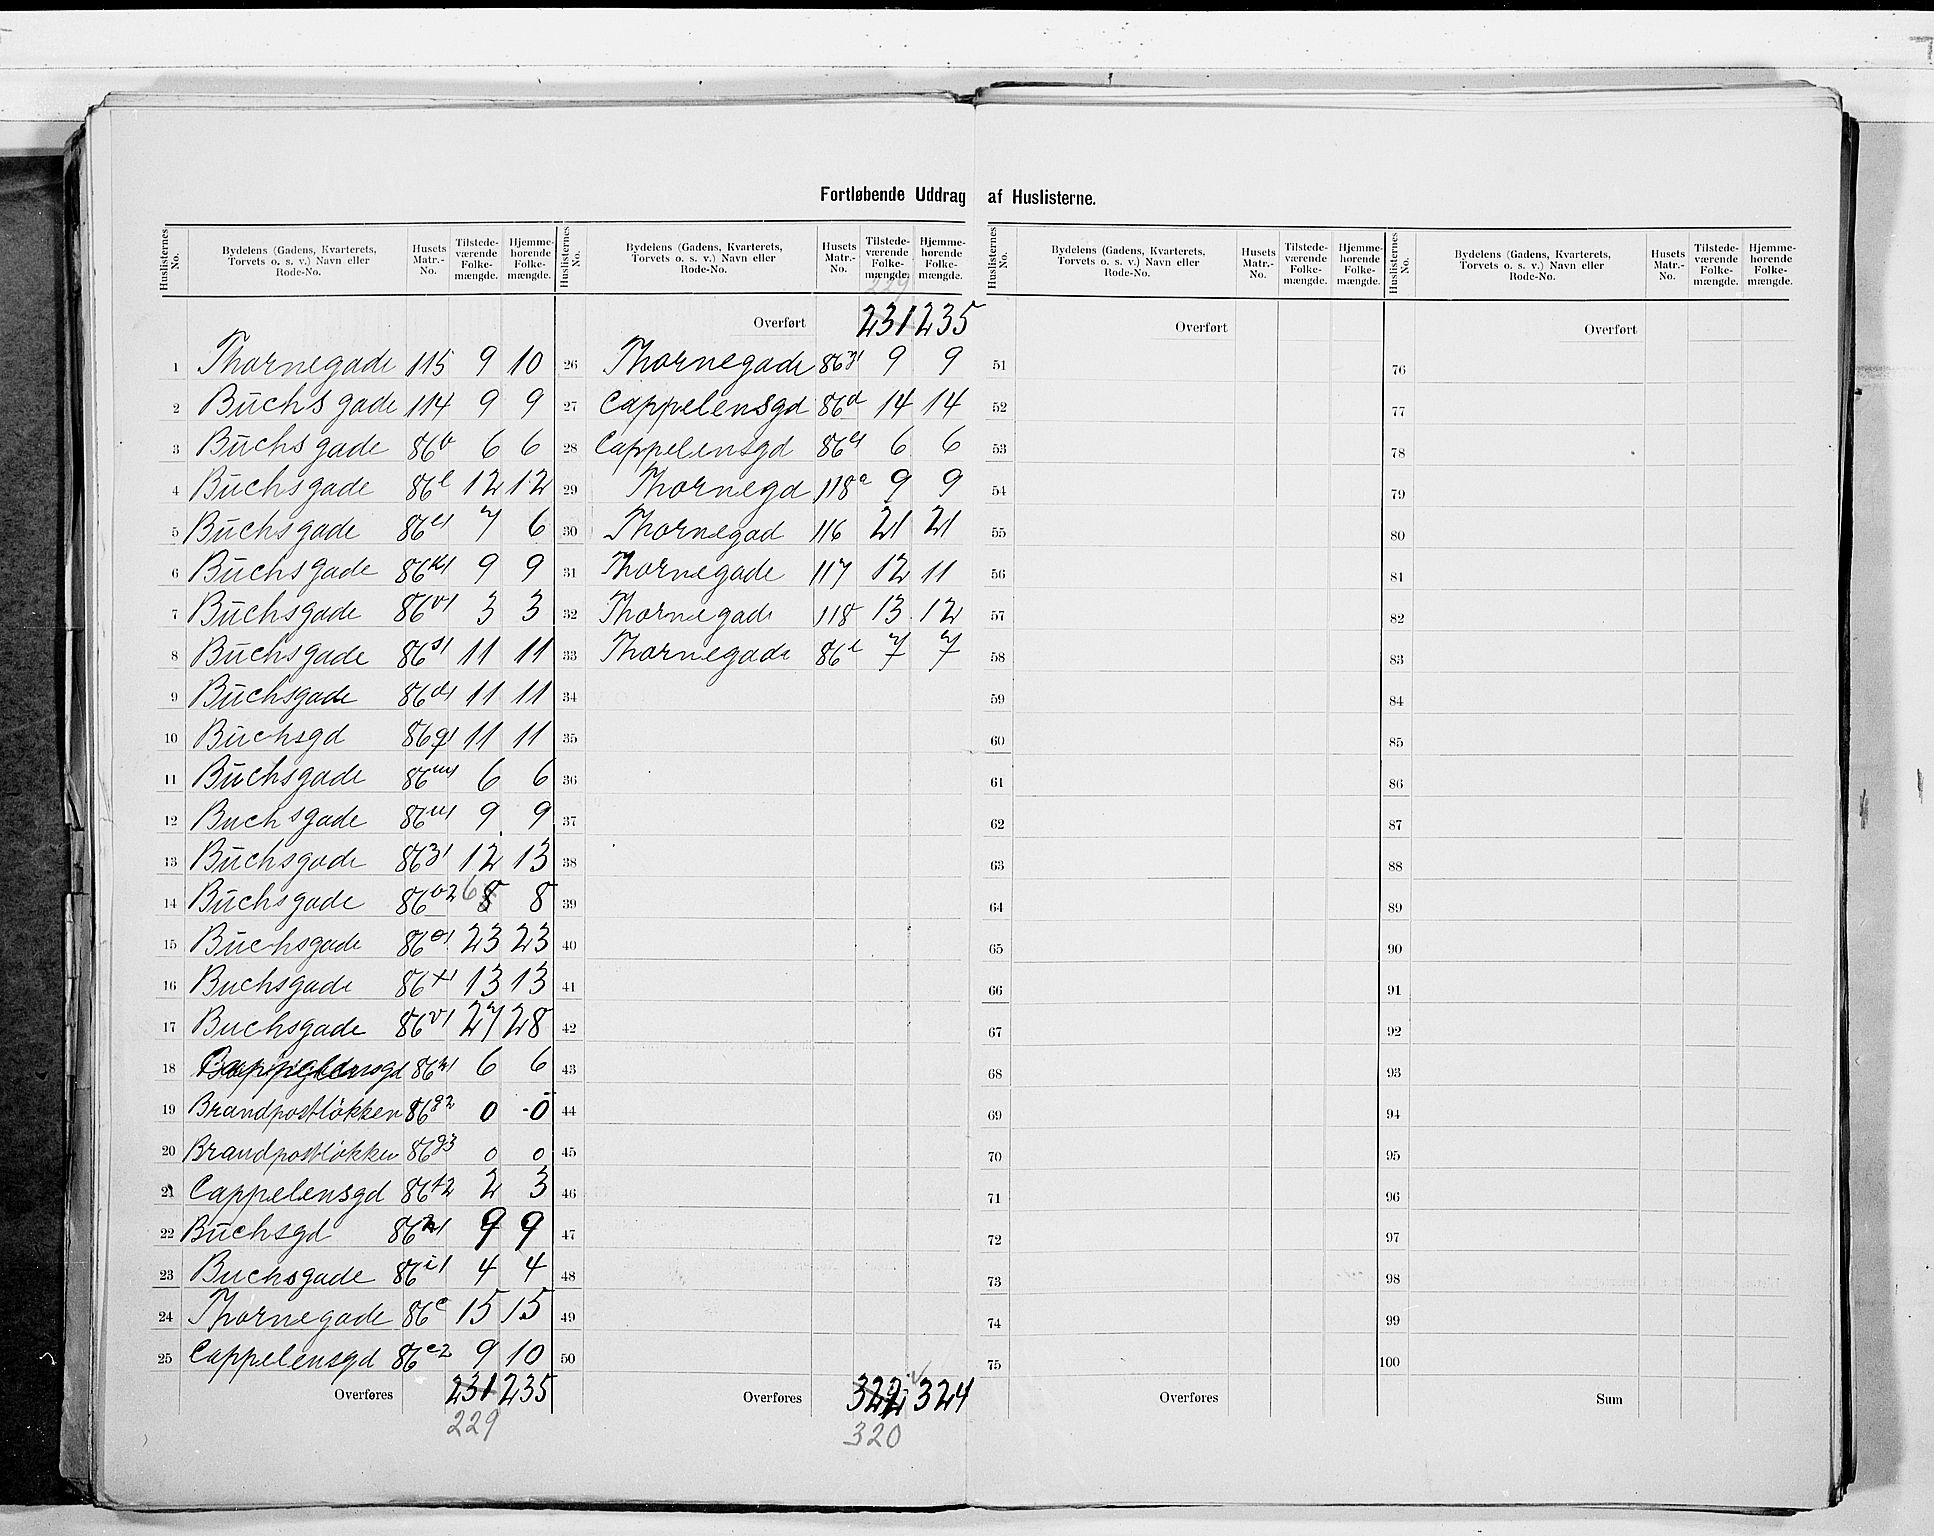 Fortløbende Uddrag af Huslisterne.
Huslisternes No. Bydelens (Gadens, Kvarterets, Torvets o. s. v.) Navn eller Rode-No. Husets Matr.-No. Tilstedeværende Folkemængde. Hjemmehørende Folkemængde.
1 Thornegade 115 9 10
2 Buchsgade 114 9 9
3 Buchsgade 86 6 6
4 Buchsgade 86 12 12
5 Buchsgade 86 7 6
6 Buchsgade 86 9 9
7 Buchsgade 86 3 3
8 Buchsgade 86 s1 11 11
9 Buchsgade 86 11 11
10 Buchsgd 86 q1 11 11
11 Buchsgade 86 6 6
12 Buchsgade 86 9 9
13 Buchsgade 86 12 13
14 Buchsgade 86 6 8 8
15 Buchsgade 86 23 23
16 Buchsgade 86 13 13
17 Buchsgade 86 v1 27 28
18 Cappelensgd 86 6 6
19 Brandpostløkken 86 g2 0 0
20 Brandpostløkken 86 g3 0 0
21 Cappelensgd 86 2 3
22 Buchsgd 86 9 9
23 Buchsgade 86 i1 4 4
24 Thornegade 86 15 15
25 Cappelensgd 86 9 10
Overføres 231 235
229
Huslisternes No. Bydelens (Gadens, Kvarterets, Torvets o. s. v.) Navn eller Rode-No. Husets Matr.-No. Tilstedeværende Folkemængde. Hjemmehørende Folkemængde.
229
Overført 231 235
26 Thornegade 86 9 9
27 Cappelensgd 86 14 14
28 Cappelensgd 86 6 6
29 Thornegd 118 a 9 9
30 Thornegad 116 21 21
31 Thornegade 117 12 11
32 Thornegade 118 13 12
33 Thornegade 86 7 7
34
35
36
37
38
39
40
41
42
43
44
45
46
47
48
49
50
Overføres 322 324
320
Huslisternes No. Bydelens (Gadens, Kvarterets, Torvets o. s. v.) Navn eller Rode-No. Husets Matr.-No. Tilstedeværende Folkemængde. Hjemmehørende Folkemængde.
Overført
51
52
53
54
55
56
57
58
59
60
61
62
63
64
65
66
67
68
69
70
71
72
73
74
75
Overføres
Huslisternes No. Bydelens (Gadens, Kvarterets, Torvets o. s. v.) Navn eller Rode-No. Husets Matr.-No. Tilstedeværende Folkemængde. Hjemmehørende Folkemængde.
Overført
76
77
78
79
80
81
82
83
84
85
86
87
88
89
90
91
92
93
94
95
96
97
98
99
100
Sum